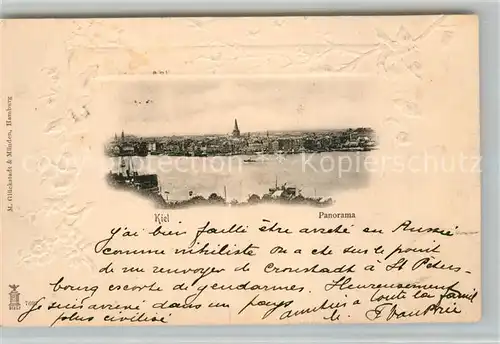 M. Glückstadt & Münden, Hamburg
Kiel
Panorama
j'ai bien failli être arreté en Russie
comme nihiliste on a été sur le point
de me renvoyer de Cronstadt à St Peters-
bourg escorté de gendarmes. Heureusement
Je suis arrivé dans un pays
plus civilisé
amitiés à toute la famil